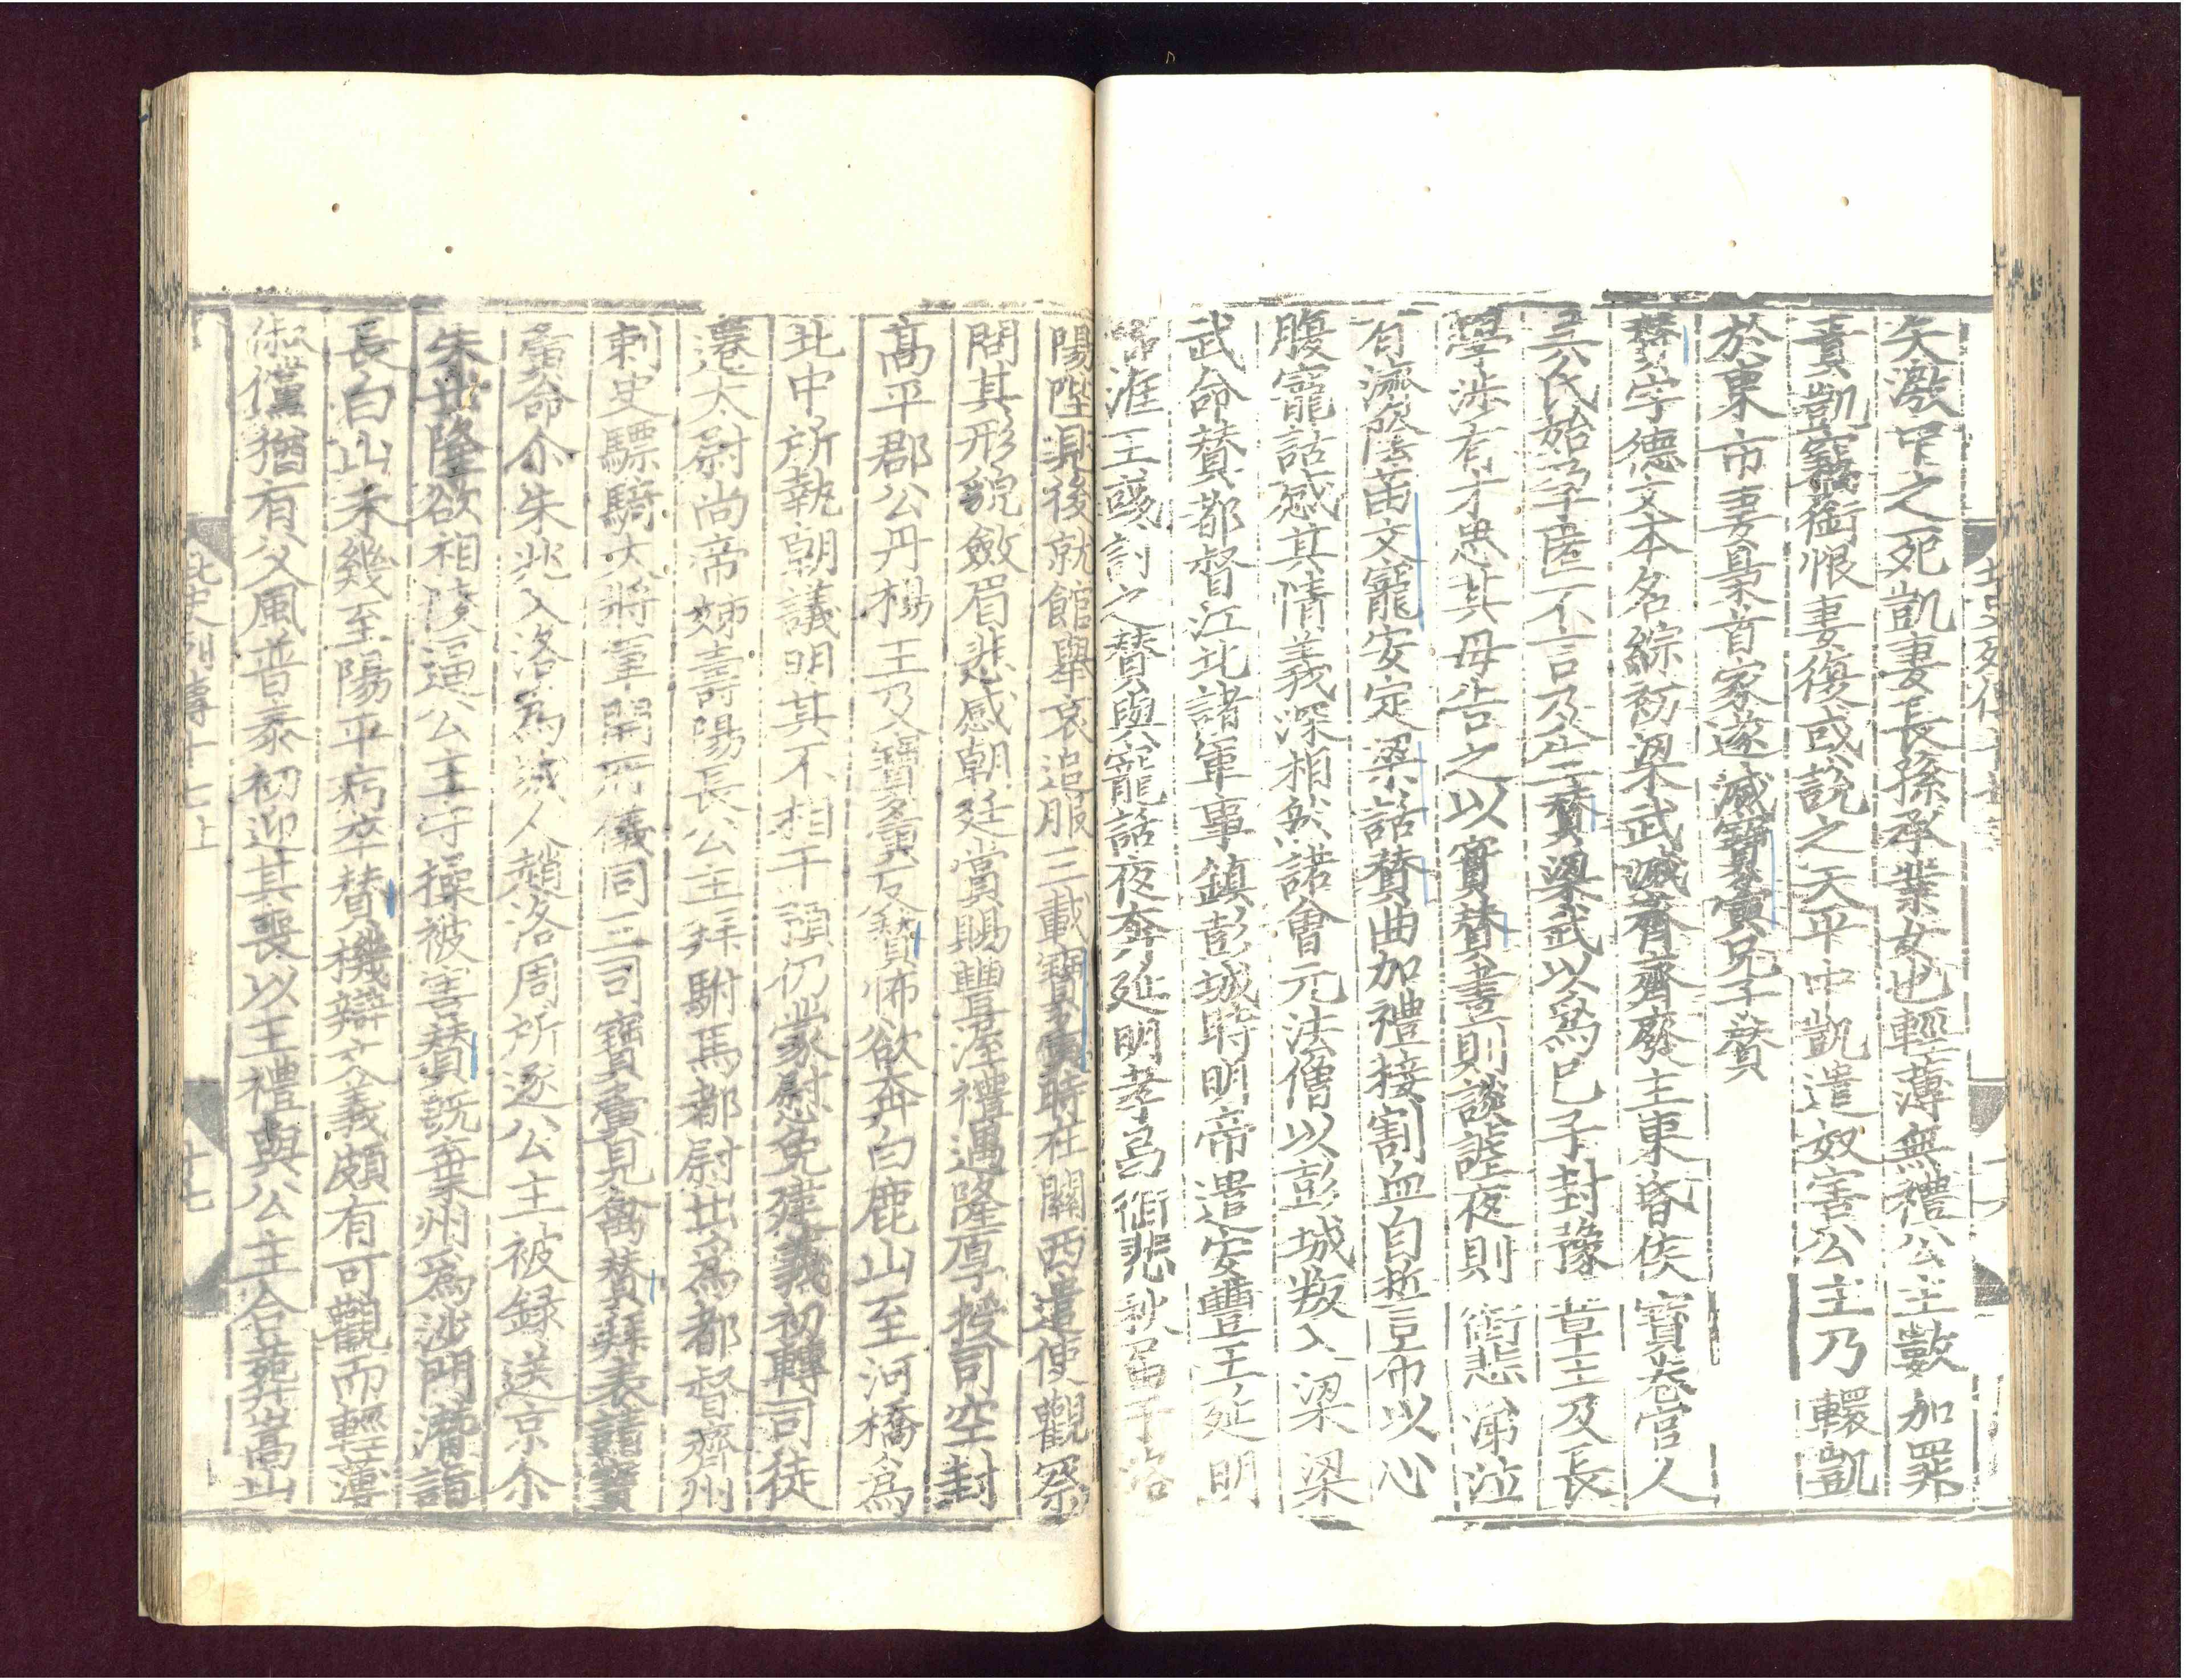 矢激罕之死凱妻長孫承業女也輕薄無禮公主數加罪
責凱竊銜恨妻復或說之天平中凱遣奴害公主乃轘凱
於東市妻梟首家遂滅寶夤兄子贊
贊字德文本名綜初梁武滅齊齊廢主東昏侯寶卷宮人
吳氏始孕匿不言及生贊梁武以爲已子封豫章主及長
學涉有才思其母告之以實贊晝則談謔夜則銜悲涕泣
有濟陰苗文寵安定梁話贊曲加禮接割血自誓言布以心
腹寵話感其情義深相然諾會元法僧以彭城叛入梁梁
武命贊都督江北諸軍事鎮彭城時明帝遣安豐王延明
臨淮王彧討之贊與寵話夜奔延明孝昌
陽陛見後就館舉哀追服三載寶夤時在關西遣使觀察
問其形貌斂眉悲感朝廷賞賜豐渥禮遇隆厚授司空封
高平郡公丹楊王及寶夤反贊怖欲奔白鹿山至河橋爲
北中所執朝議明其不相干預仍蒙慰免建義初轉司徒
遷太尉尚帝姊壽陽長公主拜駙馬都尉出爲都督齊州
刺史驃騎大將軍開府儀同三司寶夤見禽贊拜表請寶
夤命尒朱兆入洛爲城人趙洛周所逐公主被録送京尒
朱世隆欲相陵逼公主守操被害贊旣棄州爲沙門潛詣
長白山未幾至陽平病卒贊機辯文義頗有可觀而輕薄
俶儻猶有父風普泰初迎其喪以王禮與公主合葬嵩山
北史列傳十七上
十七